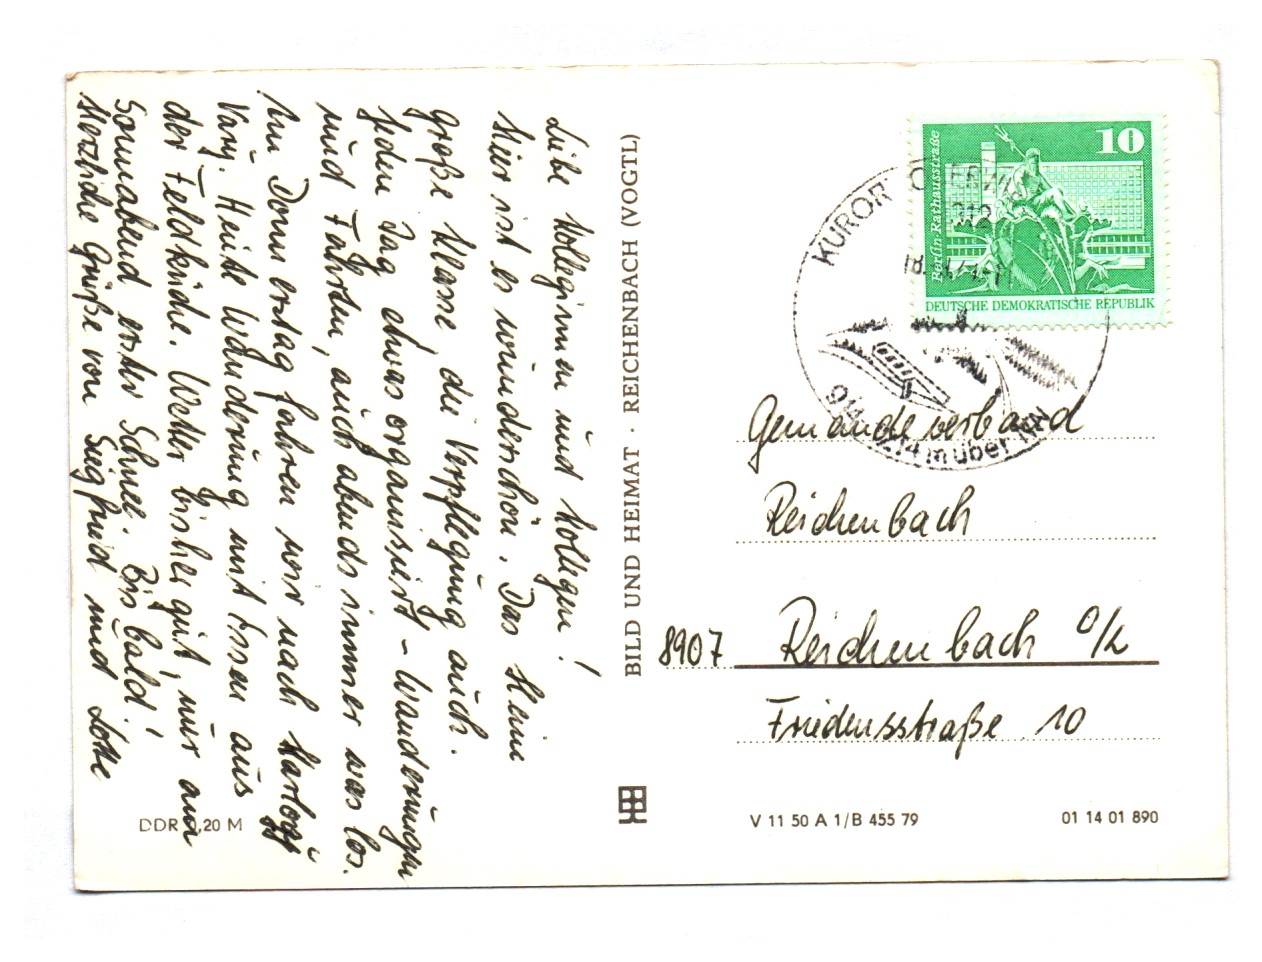 Liebe Kolleginnen und Kollegen!
Hier ist es wunderschön. Das Heim
große Klasse, die Verpflegung auch.
Jeden Tag etwas organisiert – Wanderungen
und Fahrten, auch abends immer was los.
Am Donnerstag fahren wir nach
Vary. Heute Wanderung mit Essen aus
der Feldküche. Wetter bisher gut, nur am
Sonnabend erster Schnee. Bis bald!
Herzliche Grüße von Siegfried und Lotte
DDR 0,20 M
BILD UND HEIMAT · REICHENBACH (VOGTL)
10
Berlin-Rathausstraße
DEUTSCHE DEMOKRATISCHE REPUBLIK
KURORT
914 m über NN
Gemeindeverband
Reichenbach
8907 Reichenbach O/L
Friedensstraße 10
V 11 50 A 1/B 455 79
01 14 01 890